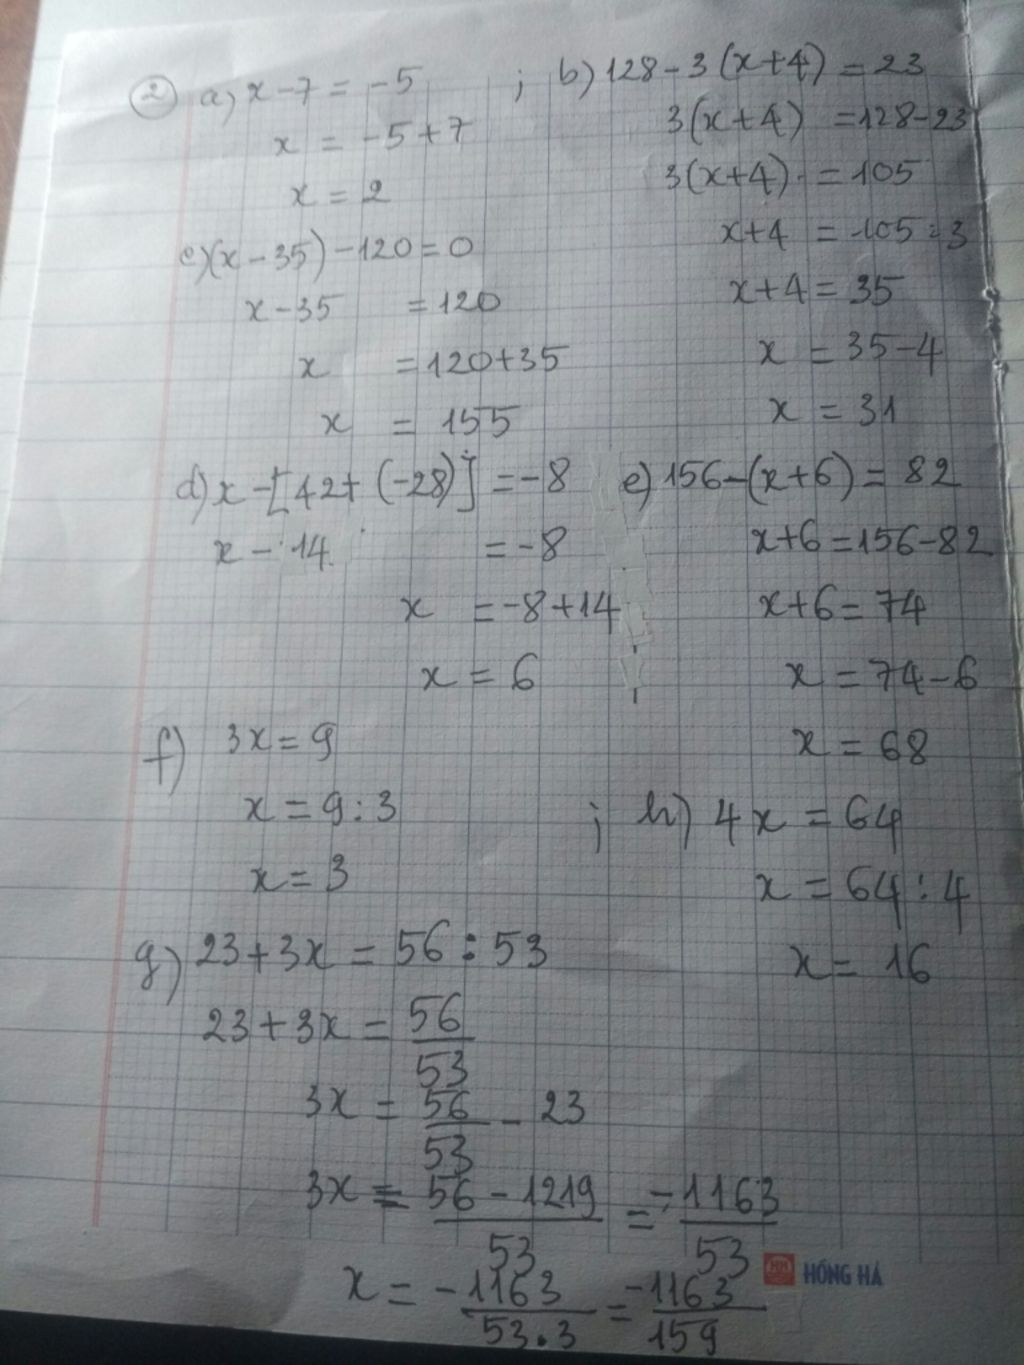 2 a) x - 7 = -5 ; b) 128 - 3 (x+4) = 23
x = -5 + 7
3(x+4) = 128 - 23
x = 2
3(x+4) = 105
c) (x - 35) - 120 = 0
x+4 = 105 : 3
x - 35 = 120
x+4 = 35
x = 120 + 35
x = 35 - 4
x = 155
x = 31
d) x - [42 + (-28)] = -8
e) 156 - (x+6) = 82
x - 14 = -8
x+6 = 156 - 82
x = -8 + 14
x+6 = 74
x = 6
x = 74 - 6
f) 3x = 9
x = 68
x = 9 : 3
; h) 4x = 64
x = 3
x = 64 : 4
g) 23 + 3x = 56 : 53
x = 16
23 + 3x = 56/53
3x = 56/53 - 23
3x = (56 - 1219)/53 = -1163/53
x = -1163/(53.3) = -1163/159
HH HỒNG HÀ